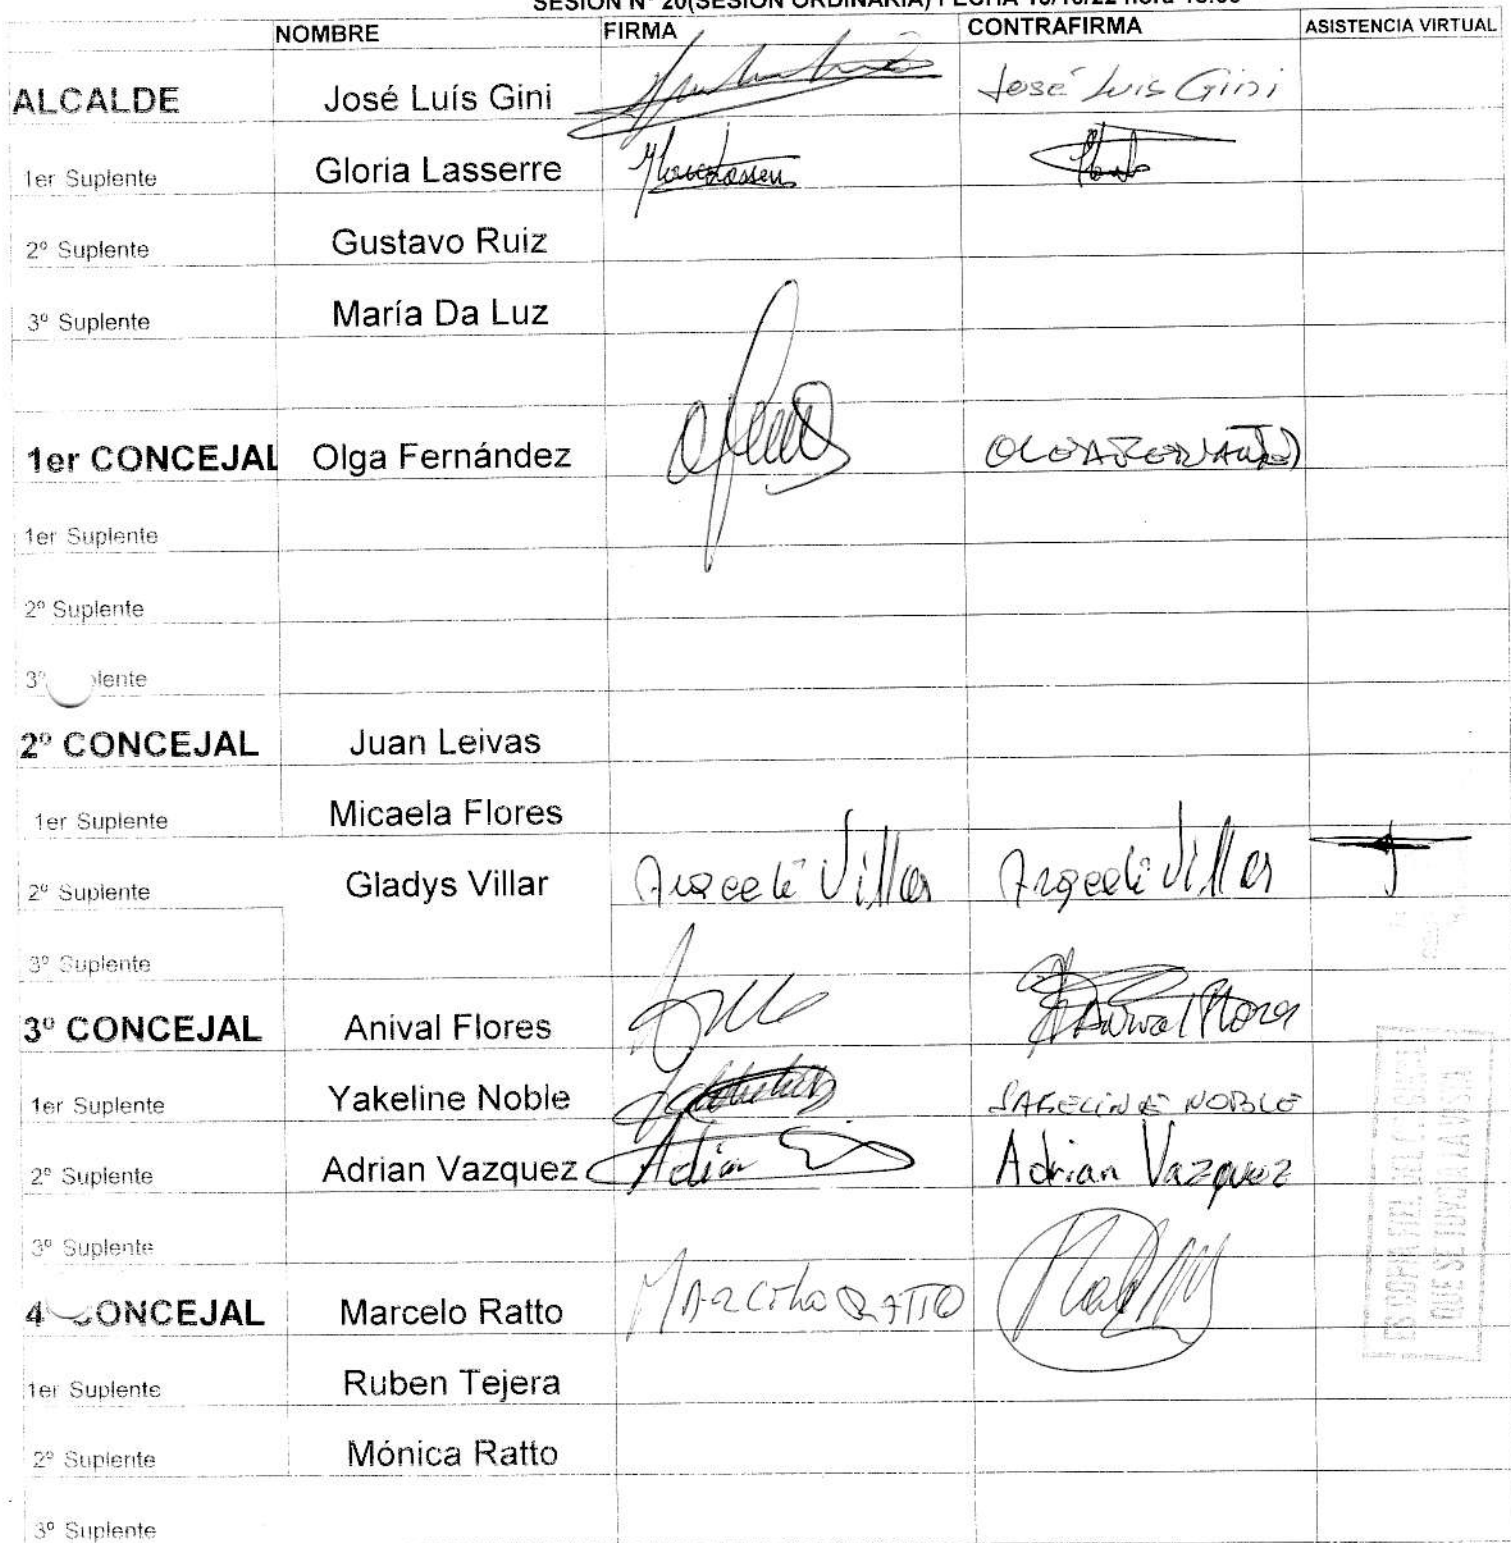 SESION N° 20(SESION ORDINARIA) FECHA
NOMBRE FIRMA CONTRAFIRMA ASISTENCIA VIRTUAL
ALCALDE José Luís Gini José Luis Gini
1er Suplente Gloria Lasserre
2º Suplente Gustavo Ruiz
3º Suplente María Da Luz
1er CONCEJAL Olga Fernández
1er Suplente
2º Suplente
3º
2º CONCEJAL Juan Leivas
1er Suplente Micaela Flores
2º Suplente Gladys Villar Villar Villar
3º Suplente
3º CONCEJAL Anival Flores Anival Flores
1er Suplente Yakeline Noble NOBLE
2º Suplente Adrian Vazquez Adrian Adrian Vazquez
3º Suplente
4 CONCEJAL Marcelo Ratto RATTO
1er Suplente Ruben Tejera
2º Suplente Mónica Ratto
3º Suplente